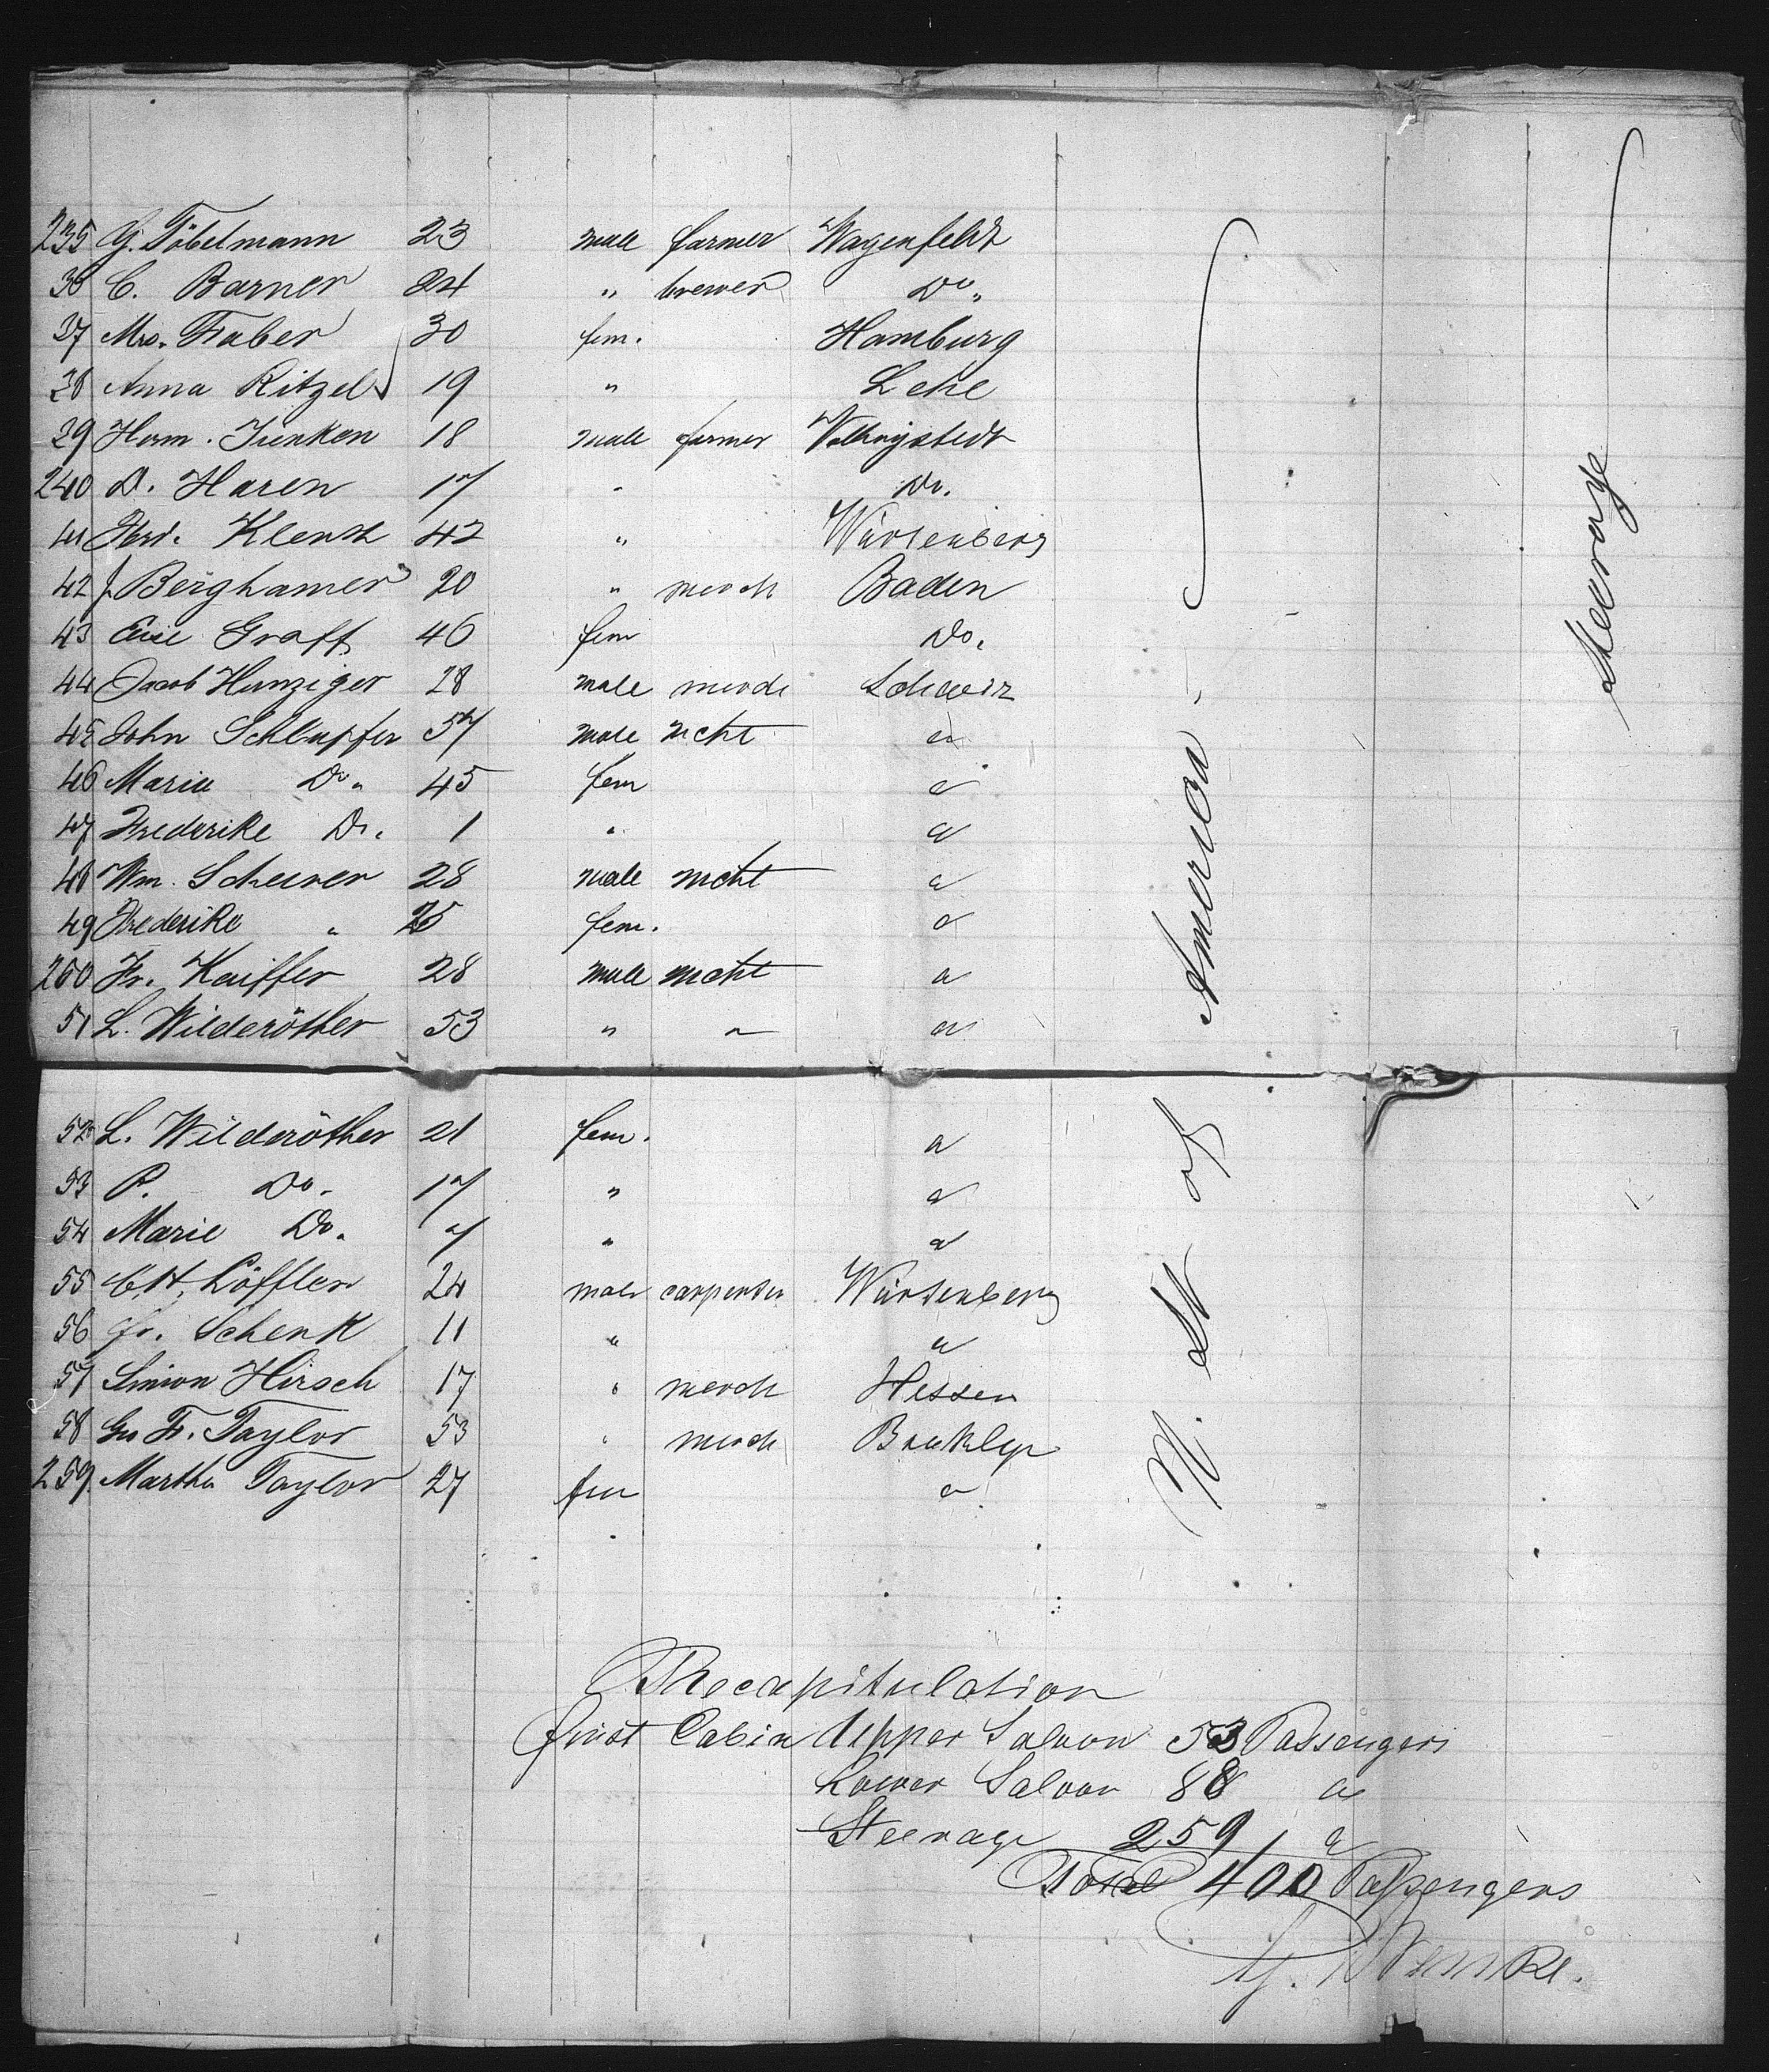 235 G. Töbelmann 23 male farmer Wagenfeldt
36 C. Barner 24 " brewer Do "
37 Mrs. Faber 30 fem. Hamburg
38 Anna Ritzel 19 " Lehe
39 Herm. Jünken 18 male farmer
240 D. Haren 17 " Do.
41 Klenk 42 " Würtenberg
42 J. Berghamer 20 " merch Baden
43 Graff 46 fem Do.
44 Jacob Hunziger 28 male merch Schweiz
45 John Schlupfer 57 male mcht "
46 Marie Do " 45 fem "
47 Frederike Do. 1 " "
48 Wm. Scheurer 28 male mcht "
49 Frederike " 25 fem. "
250 Fr. Kaiffer 28 male mcht "
51 L. Wilderöther 53 " " "
52 L. Wilderöther 21 fem. "
53 P. Do. 17 " "
54 Marie Do. 7 " "
55 Löffler 24 male carpenter Würtenberg
56 Fr. Schenk 11 " "
57 Simon Hirsch 17 " merch Hessen
58 Geo F. Taylor 53 " merch Brooklyn
259 Martha Taylor 27 fem "
U. St of America
Steerage
Recapitulation
first Cabin Upper Saloon 53 Passengers
Lower Saloon 88 "
Steerage 259 "
Total 400 Passengers